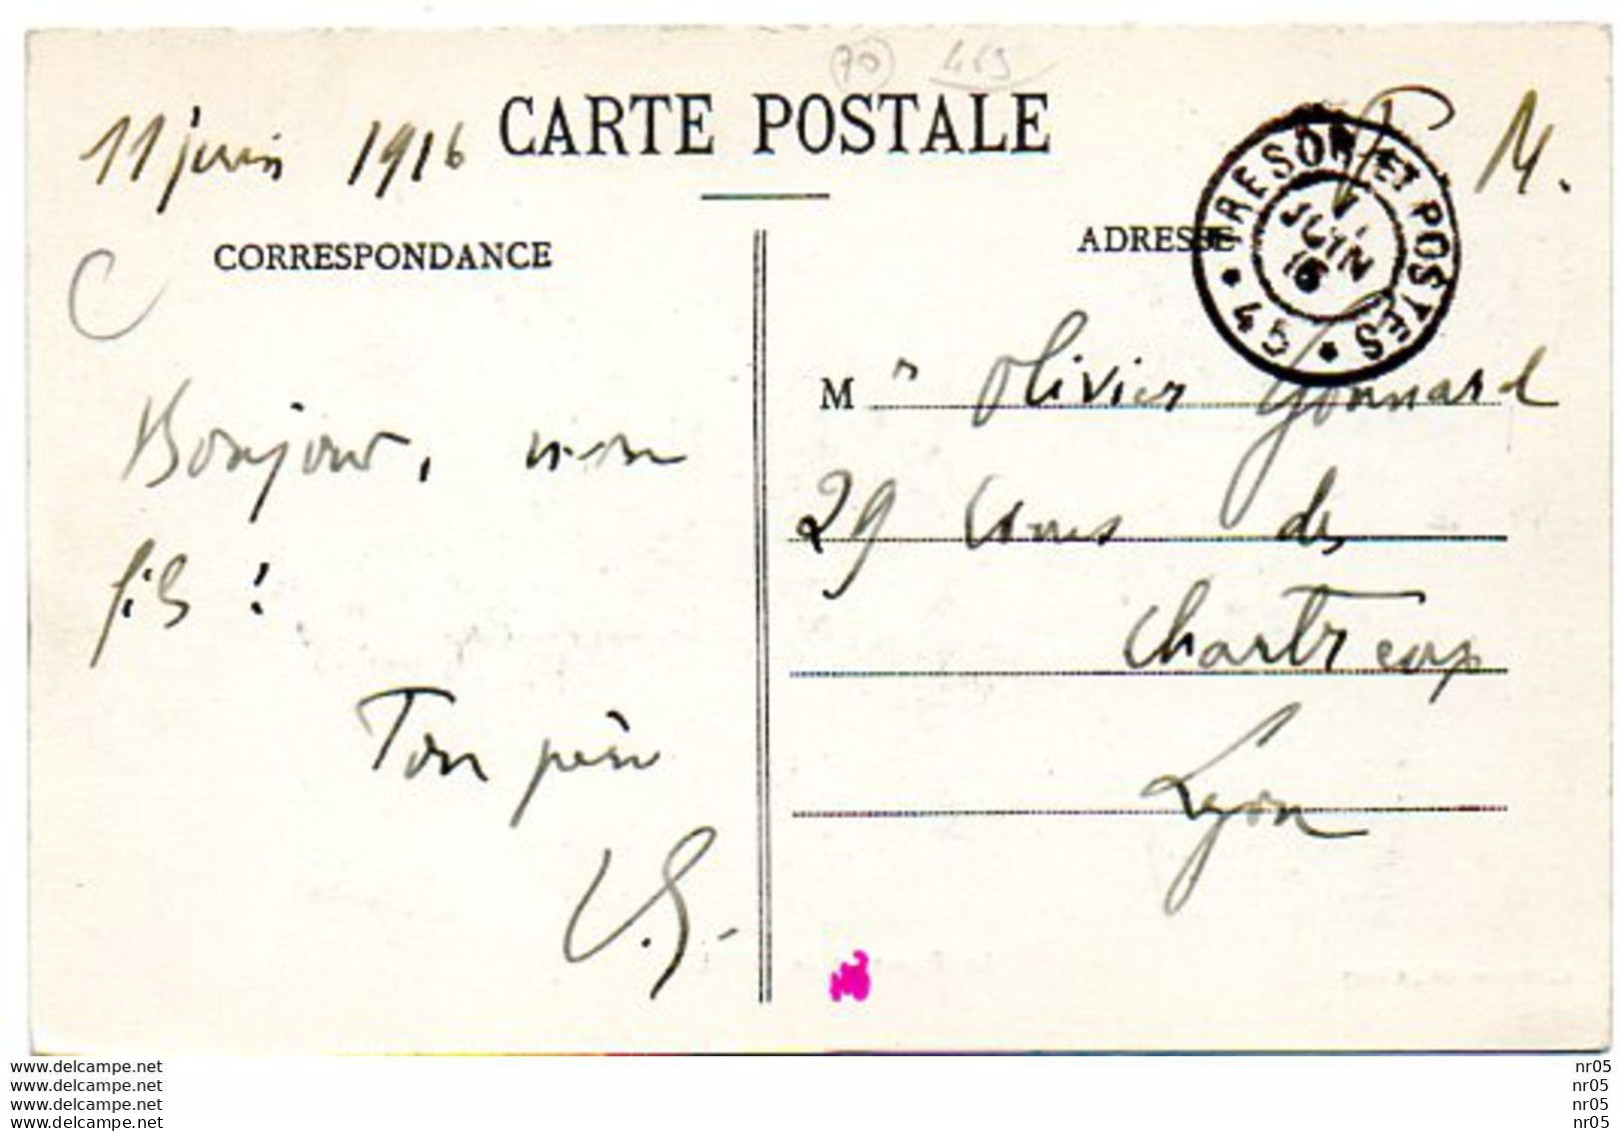 70 469
CARTE POSTALE
11 juin 1916
F M.
CORRESPONDANCE
ADRESSE
TRESOR ET POSTES * 94 *
11
JUIN
16
C
Bonjour, mon
fils !
Ton père
V.G.
M r Olivier Gonnard
29 Cours des
Chartreux
Lyon
www.delcampe.net
www.delcampe.net
www.delcampe.net
www.delcampe.net
nr05
nr05
nr05
nr05